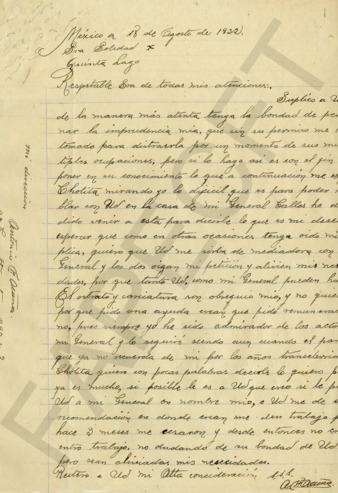 México a 18 de Agosto de 1922.
Sra Soledad
Quinta Lago
Respetable Sra de todas mis atenciones.
Suplico a U
de la manera más atenta tenga la bondad de per
nar la imprudencia mia, que sin su permiso me
tomado para distraerla por un momento de sus mu
tiples ocupaciones, pero si lo hago asi es con el fin
poner en su conocimiento lo que a continuación me es
Cholita mirando yo lo dificil que es para poder
blar con Ud en la casa de mi General Calles he de
dido venir a esta para decirle lo que es mi dese
esperar que como en otras ocasiones tenga oido mi
plica, quiero que Ud me sirba de mediadora con
General y los dos oigan mi petición y aliven mis nes
dades, por que tanto Ud, como mi General pueden ha
El retrato y caricatura son obsequio mio, y no quie
por que pido una ayuda crean que pido remunera
no, pues siempre yo he sido admirador de los actos
mi General y lo seguiré siendo aun cuando el par
que ya no recuerda de mi por los años transcurrido
Cholita quiero con pocas palabras decirle lo quiero
ya es mucho, si posible le es a Ud que crea si le p
Ud a mi General en nombre mio, o Ud me de
recomendación en donde crean me den trabajo p
hace 3 meses me cesaron y desde entonces no co
entro trabajo, no dudando de su bondad de Ud
pero sean aliviadas mis necesidades.
Reitero a Ud mi Alta consideración
Mi dirección
Antonio P. Acuña